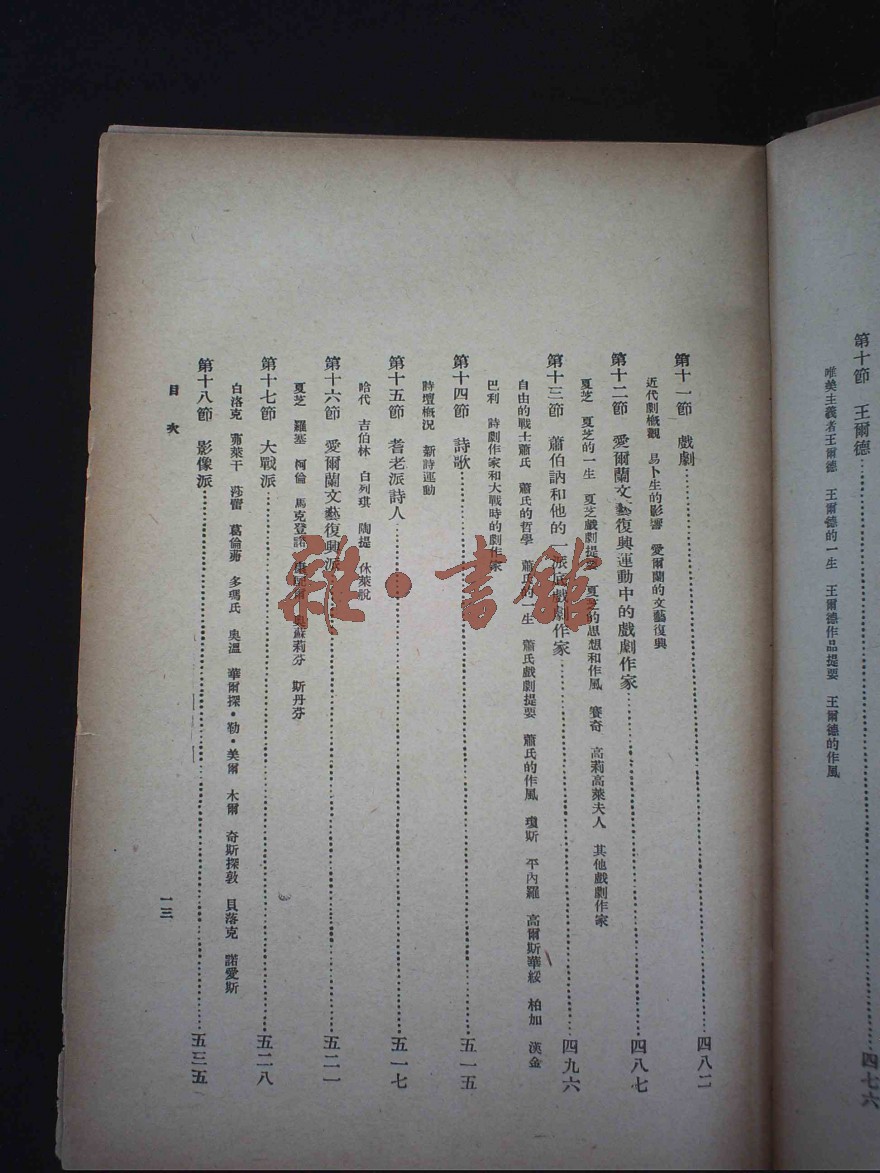 第十節　王爾德……四七六
唯美主義者王爾德　王爾德的一生　王爾德作品提要　王爾德的作風
第十一節　戲劇……四八二
近代劇概觀　易卜生的影響　愛爾蘭的文藝復興
第十二節　愛爾蘭文藝復興運動中的戲劇作家……四八七
夏芝　夏芝的一生　夏芝戲劇提要　夏芝的思想和作風　賽奇　高莉高萊夫人　其他戲劇作家
第十三節　蕭伯訥和他的一派底戲劇作家……四九六
自由的戰士蕭氏　蕭氏的哲學　蕭氏的一生　蕭氏戲劇提要　蕭氏的作風　瓊斯　平內羅　高爾斯華綏　柏加　漢金
巴利　詩劇作家和大戰時的劇作家
第十四節　詩歌……五一五
詩壇概況　新詩運動
第十五節　耆老派詩人……五一七
哈代　吉伯林　白列琪　陶提　休萊說
第十六節　愛爾蘭文藝復興派……五二一
夏芝　羅塞　柯倫　馬克登諾　奧蘇莉芬　斯丹芬
第十七節　大戰派……五二八
白洛克　葛倫弗　多瑪氏　奧溫　華爾探・勒・美爾　木爾　奇斯探敦　貝落克　諾愛斯
第十八節　影像派……五三五
目次
一三
雜・書館